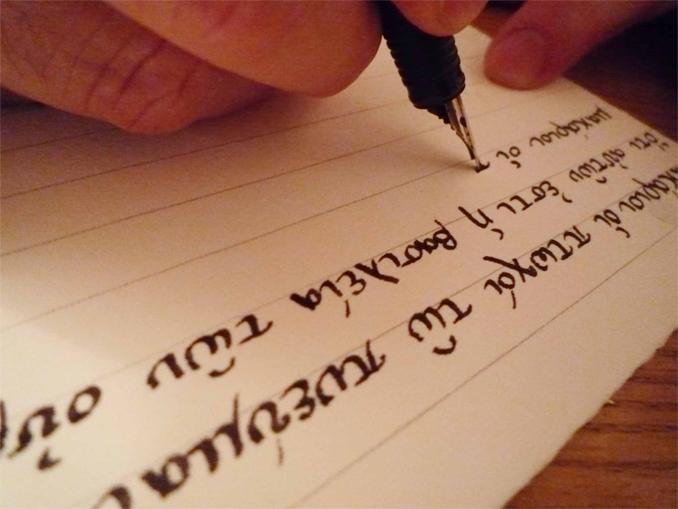 μακάριοι οἱ πτωχοί τῷ πνεύμα
ὅτι αὐτῶν ἐστι ἡ βασιλεία τῶν οὐρ
μακάριοι οἱ